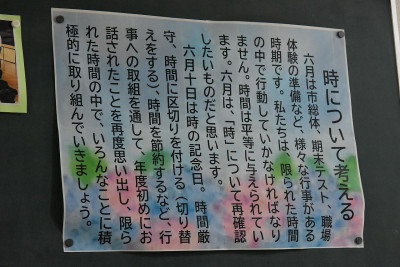 時について考える
六月は市総体、期末テスト、職場
体験の準備など、様々な行事がある
時期です。私たちは、限られた時間
の中で行動していかなければなり
ません。時間は平等に与えられてい
ます。六月は、「時」について再確認
したいものだと思います。
六月十日は時の記念日。時間厳
守、時間に区切りを付ける（切り替
えをする）、時間を節約するなど、行
事への取組を通して、年度初めにお
話されたことを再度思い出し、限ら
れた時間の中で、いろんなことに積
極的に取り組んでいきましょう。